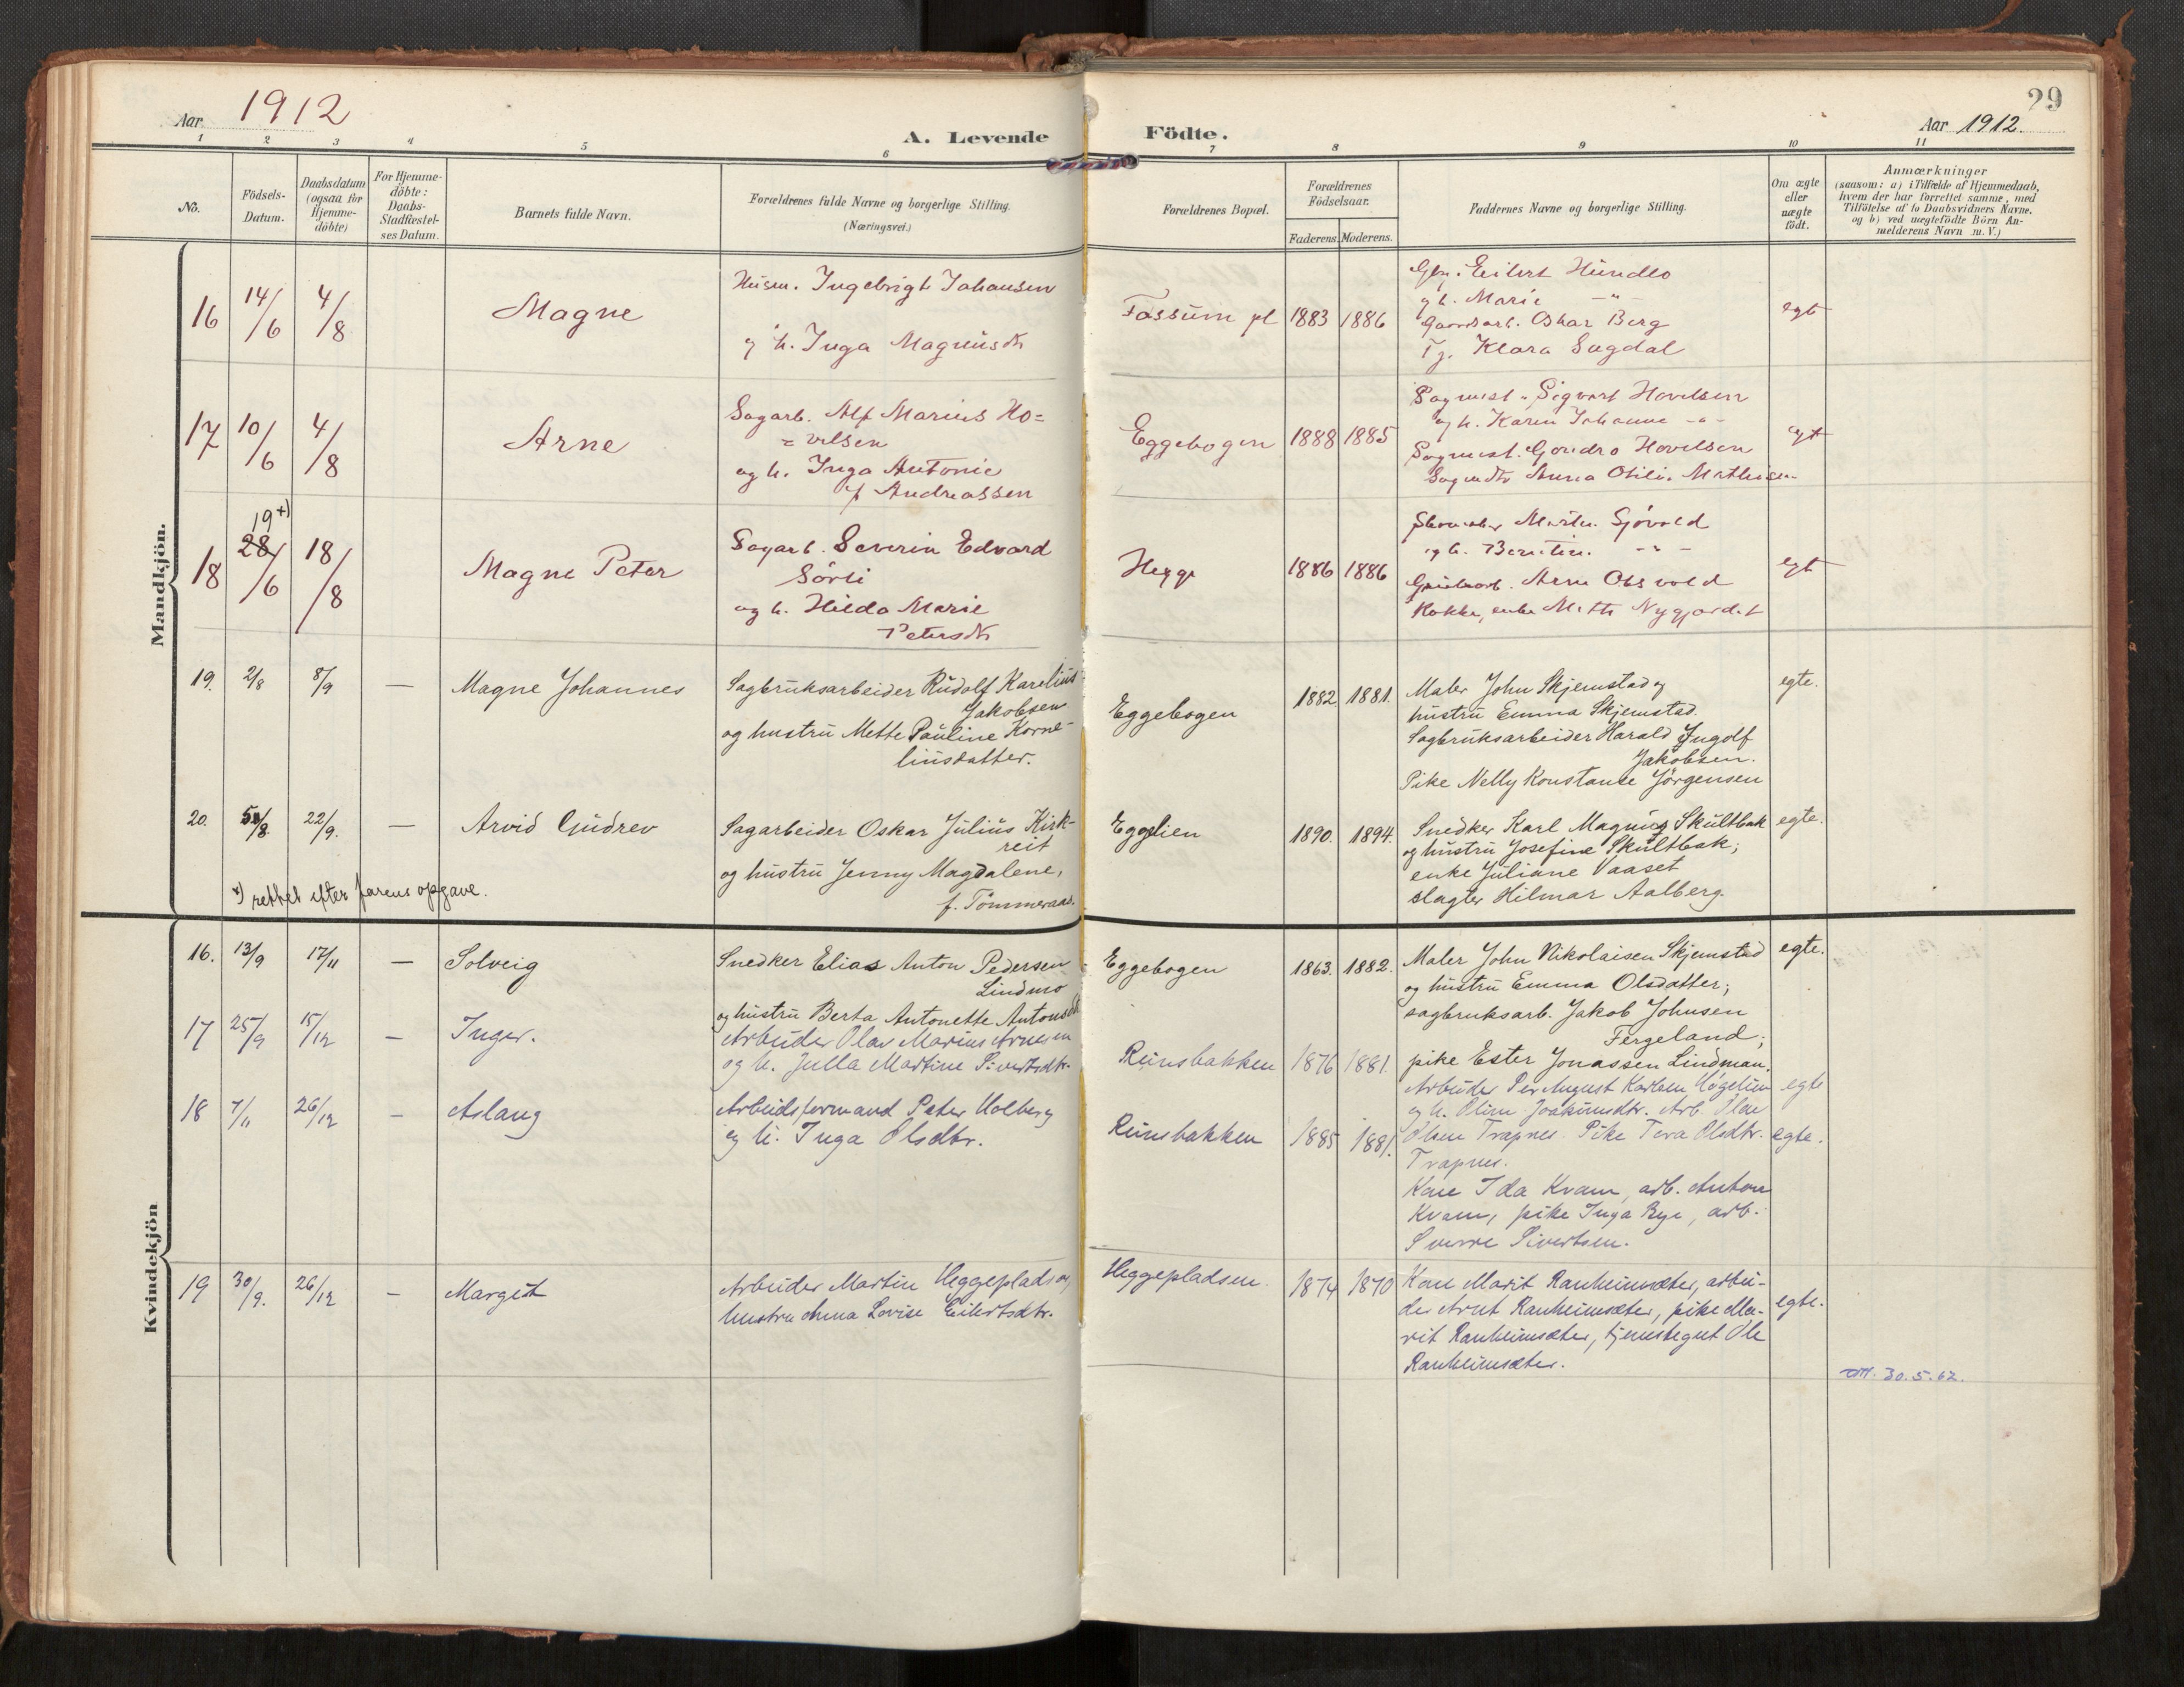 29
Aar 1912
A. Levende Födte.
Aar 1912.
1 2 3 4 5 6 7 8 9 10 11
No.
Födsels-
Datum.
Daabsdatum
(ogsaa for
Hjemme-
döbte)
For Hjemme-
döbte:
Daabs-
Stadfæstel-
ses Datum.
Barnets fulde Navn.
Forældrenes fulde Navne og borgerlige Stilling.
(Næringsvei.)
Forældrenes Bopæl.
Forældrenes
Födselsaar.
Faderens. Moderens.
Faddernes Navne og borgerlige Stilling.
Om ægte
eller
uægte
födt.
Anmærkninger
(saasom: a) i Tilfælde af Hjemmedaab,
hvem der har forrettet samme, med
Tilföielse af to Daabsvidners Navne,
og b) ved uægtefödte Börn An-
melderens Navn m. V.)
Mandkjön.
16 14/6 4/8 Magne
Husm. Ingebrigt Johansen
og h. Inga Magnusdtr
Fossum pl 1883 1886
Gbr. Eilert Hundlo
og h. Marie -"-
Gaardsarb. Oskar Berg
Tj. Klara Sugdal
egt
17 10/6 4/8 Arne
Sagarb. Alf Marius Ho=
=velsen
og h. Inga Antonie
f Andreassen
Eggebogen 1888 1885
Sagmest. Sigvart Hovelsen
og h. Karen Johanne -"-
Sagmest. Hovelsen
Anna Otilie Mathisen
egt
18 19 +) 28/6 18/8 Magne Peter
Sagarb. Severin Edvard
Sörli
og h. Hilda Marie
Petersdtr
Hegge 1886 1886
Martin Sjövold
og h. -"-
Arne Obsvold
Kokke, enke Mette Nygjordet
egt
19. 2/8 8/9 — Magne Johannes
Sagbruksarbeider Rudolf Karelius
Jakobsen
og hustru Mette Pauline Korne-
liusdatter.
Eggebogen 1882 1881.
Maler John Skjemstad og
hustru Emma Skjemstad.
Sagbruksarbeider Harald Ingolf
Jakobsen.
Pike Nelly Konstanse Jörgensen
egte.
20. 5/8. 22/9. — Arvid Gudrev
Sagarbeider Oskar Julius Kirk-
reit
og hustru Jenny Magdalene,
f. Tömmeraas.
Eggelien 1890. 1894.
Snedker Karl Magnus Skultbak
og hustru Josefine Skultbak;
enke Juliane Vaaset
slagter Hilmar Aalberg.
egte.
+) rettet efter farens opgave.
Kvindekjön
16. 13/9 17/11 — Solveig
Snedker Elias Anton Pedersen
Lindmo
og hustru Berta Antonette Antonsdtr
Eggebogen 1863. 1882.
Maler John Nikolaisen Skjemstad
og hustru Emma Olsdatter;
sagbruksarb. Jakob Johnsen
Fergeland;
pike Ester Jonassen Lindman.
egte.
17 25/9 15/12 — Inger.
Arbeider Olav Marius Arnesen
og h. Julla Martine Sivertsdtr.
Runsbakken 1876 1881.
Arbeider Per August Karlsen Högelien
og h. Oline Joakimsdtr. Arb. Olav
Olsen Trapnes. Pike Tora Olsdtr.
Trapnes.
egte
18 7/11 26/12 — Aslaug
Arbeidsformand Peter Holberg
og h. Inga Olsdtr.
Runsbakken 1885 1881.
Kone Ida Kvam, arb. Anton
Kvam, pike Inga Rye, arb.
Sverre Sivertsen.
egte.
19 30/9. 26/12 — Margit
Arbeider Martin Heggeplads og
hustru Anna Lovise Eilertsdtr.
Heggepladsen. 1874 1870
Kone Marit Ranheimsæter, arbei-
der Arnt Ranheimsæter, pike Ma-
rit Ranheimsæter, tjenestegut Ole
Ranheimsæter.
egte.
att. 30.5.62.